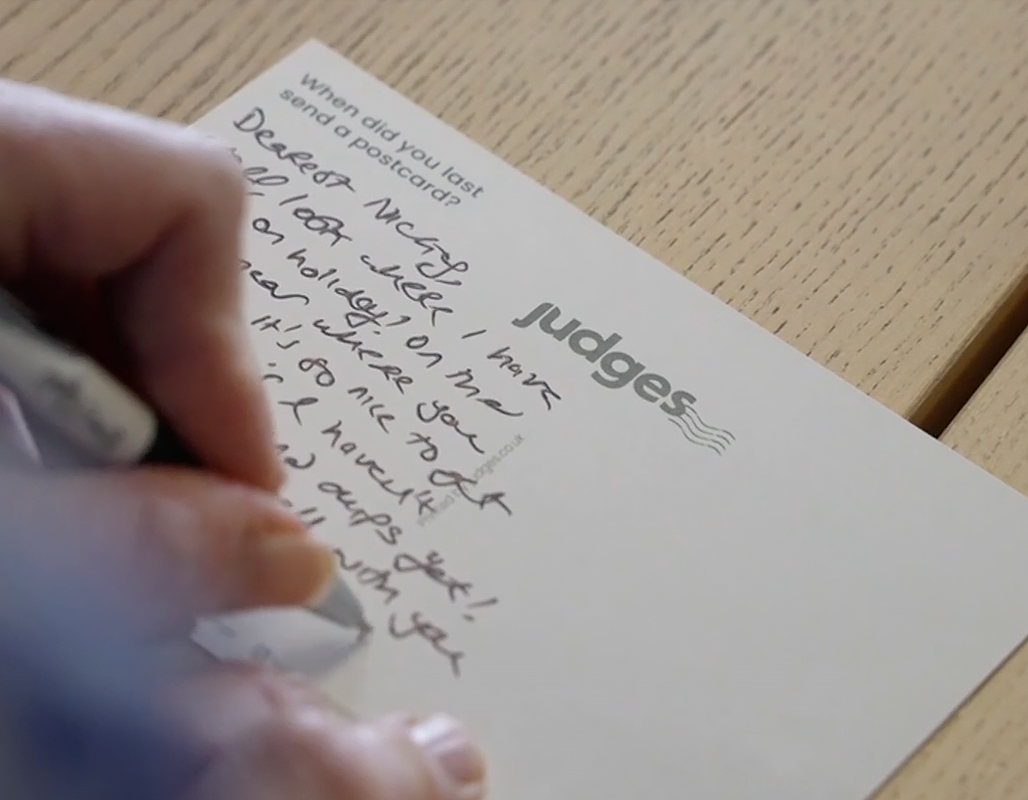 When did you last
send a postcard?
Dearest Nicky,
look where I have
on holiday, on the
where you
It's so nice to get
I haven't
yet!
with you
judges
judges.co.uk